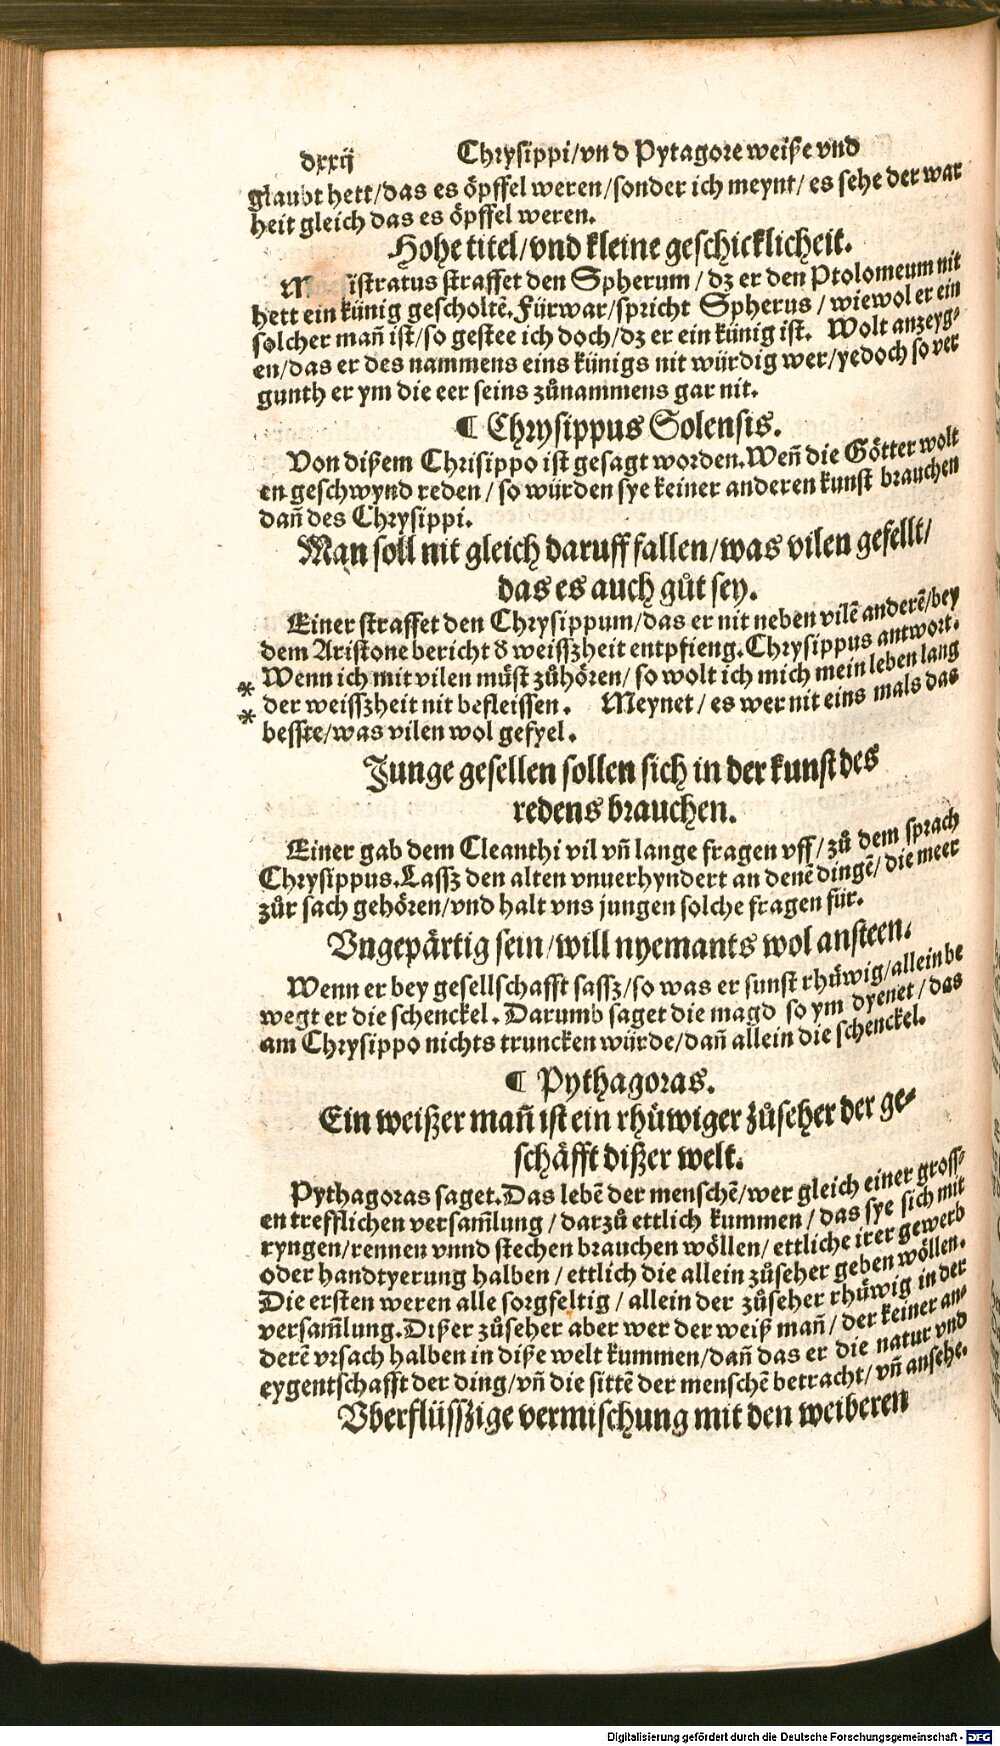 dxxij Chrysippi/vnd Pytagore weiße vnd
glaubt hett/das es öpffel weren/sonder ich meynt/es sehe der war
heit gleich das es öpffel weren.
Hohe titel/vnd kleine geschicklicheit.
istratus straffet den Spherum/dz er den Ptolomeum nit
hett ein künig gescholtē.Fürwar/spricht Spherus/wiewol er ein
solcher mañ ist/so gestee ich doch/dz er ein künig ist. Wolt anzeyg-
en/das er des nammens eins künigs nit würdig wer/yedoch so ver
gunth er ym die eer seins zůnammens gar nit.
¶ Chrysippus Solensis.
Von dißem Chrisippo ist gesagt worden.Weñ die Götter wolt
en geschwynd reden/so würden sye keiner anderen kunst brauchen
dañ des Chrysippi.
Man soll nit gleich daruff fallen/was vilen gefellt/
das es auch gůt sey.
Einer straffet den Chrysippum/das er nit neben vilē anderē/bey
dem Aristone bericht d̕ weisszheit entpfieng.Chrysippus antwort.
* Wenn ich mit vilen müst zůhören/so wolt ich mich mein leben lang
* der weisszheit nit befleissen. Meynet/es wer nit eins mals das
besste/was vilen wol gefyel.
Junge gesellen sollen sich in der kunst des
redens brauchen.
Einer gab dem Cleanthi vil vñ lange fragen vff/zů dem sprach
Chrysippus.Lassz den alten vnuerhyndert an denē dingē/die meer
zůr sach gehören/vnd halt vns jungen solche fragen für.
Vngepärtig sein/will nyemants wol ansteen.
Wenn er bey gesellschafft sassz/so was er sunst rhüwig/allein be
wegt er die schenckel. Darumb saget die magd so ym dyenet/das
am Chrysippo nichts truncken würde/dañ allein die schenckel.
¶ Pythagoras.
Ein weißer mañ ist ein rhüwiger zůseher der ge-
schäfft dißer welt.
Pythagoras saget.Das lebē der menschē/wer gleich einer gross-
en trefflichen versam̃lung/darzů ettlich kummen/das sye sich mit
ryngen/rennen vnnd stechen brauchen wöllen/ettliche irer gewerb
oder handtyerung halben/ettlich die allein zůseher geben wöllen.
Die ersten weren alle sorgfeltig/allein der zůseher rhüwig in der
versam̃lung.Dißer zůseher aber wer der weiß mañ/der keiner an-
derē vrsach halben in diße welt kummen/dañ das er die natur vnd
eygentschafft der ding/vñ die sittē der menschē betracht/vñ ansehe.
Vberflüsszige vermischung mit den weiberen
Digitalisierung gefördert durch die Deutsche Forschungsgemeinschaft - DFG